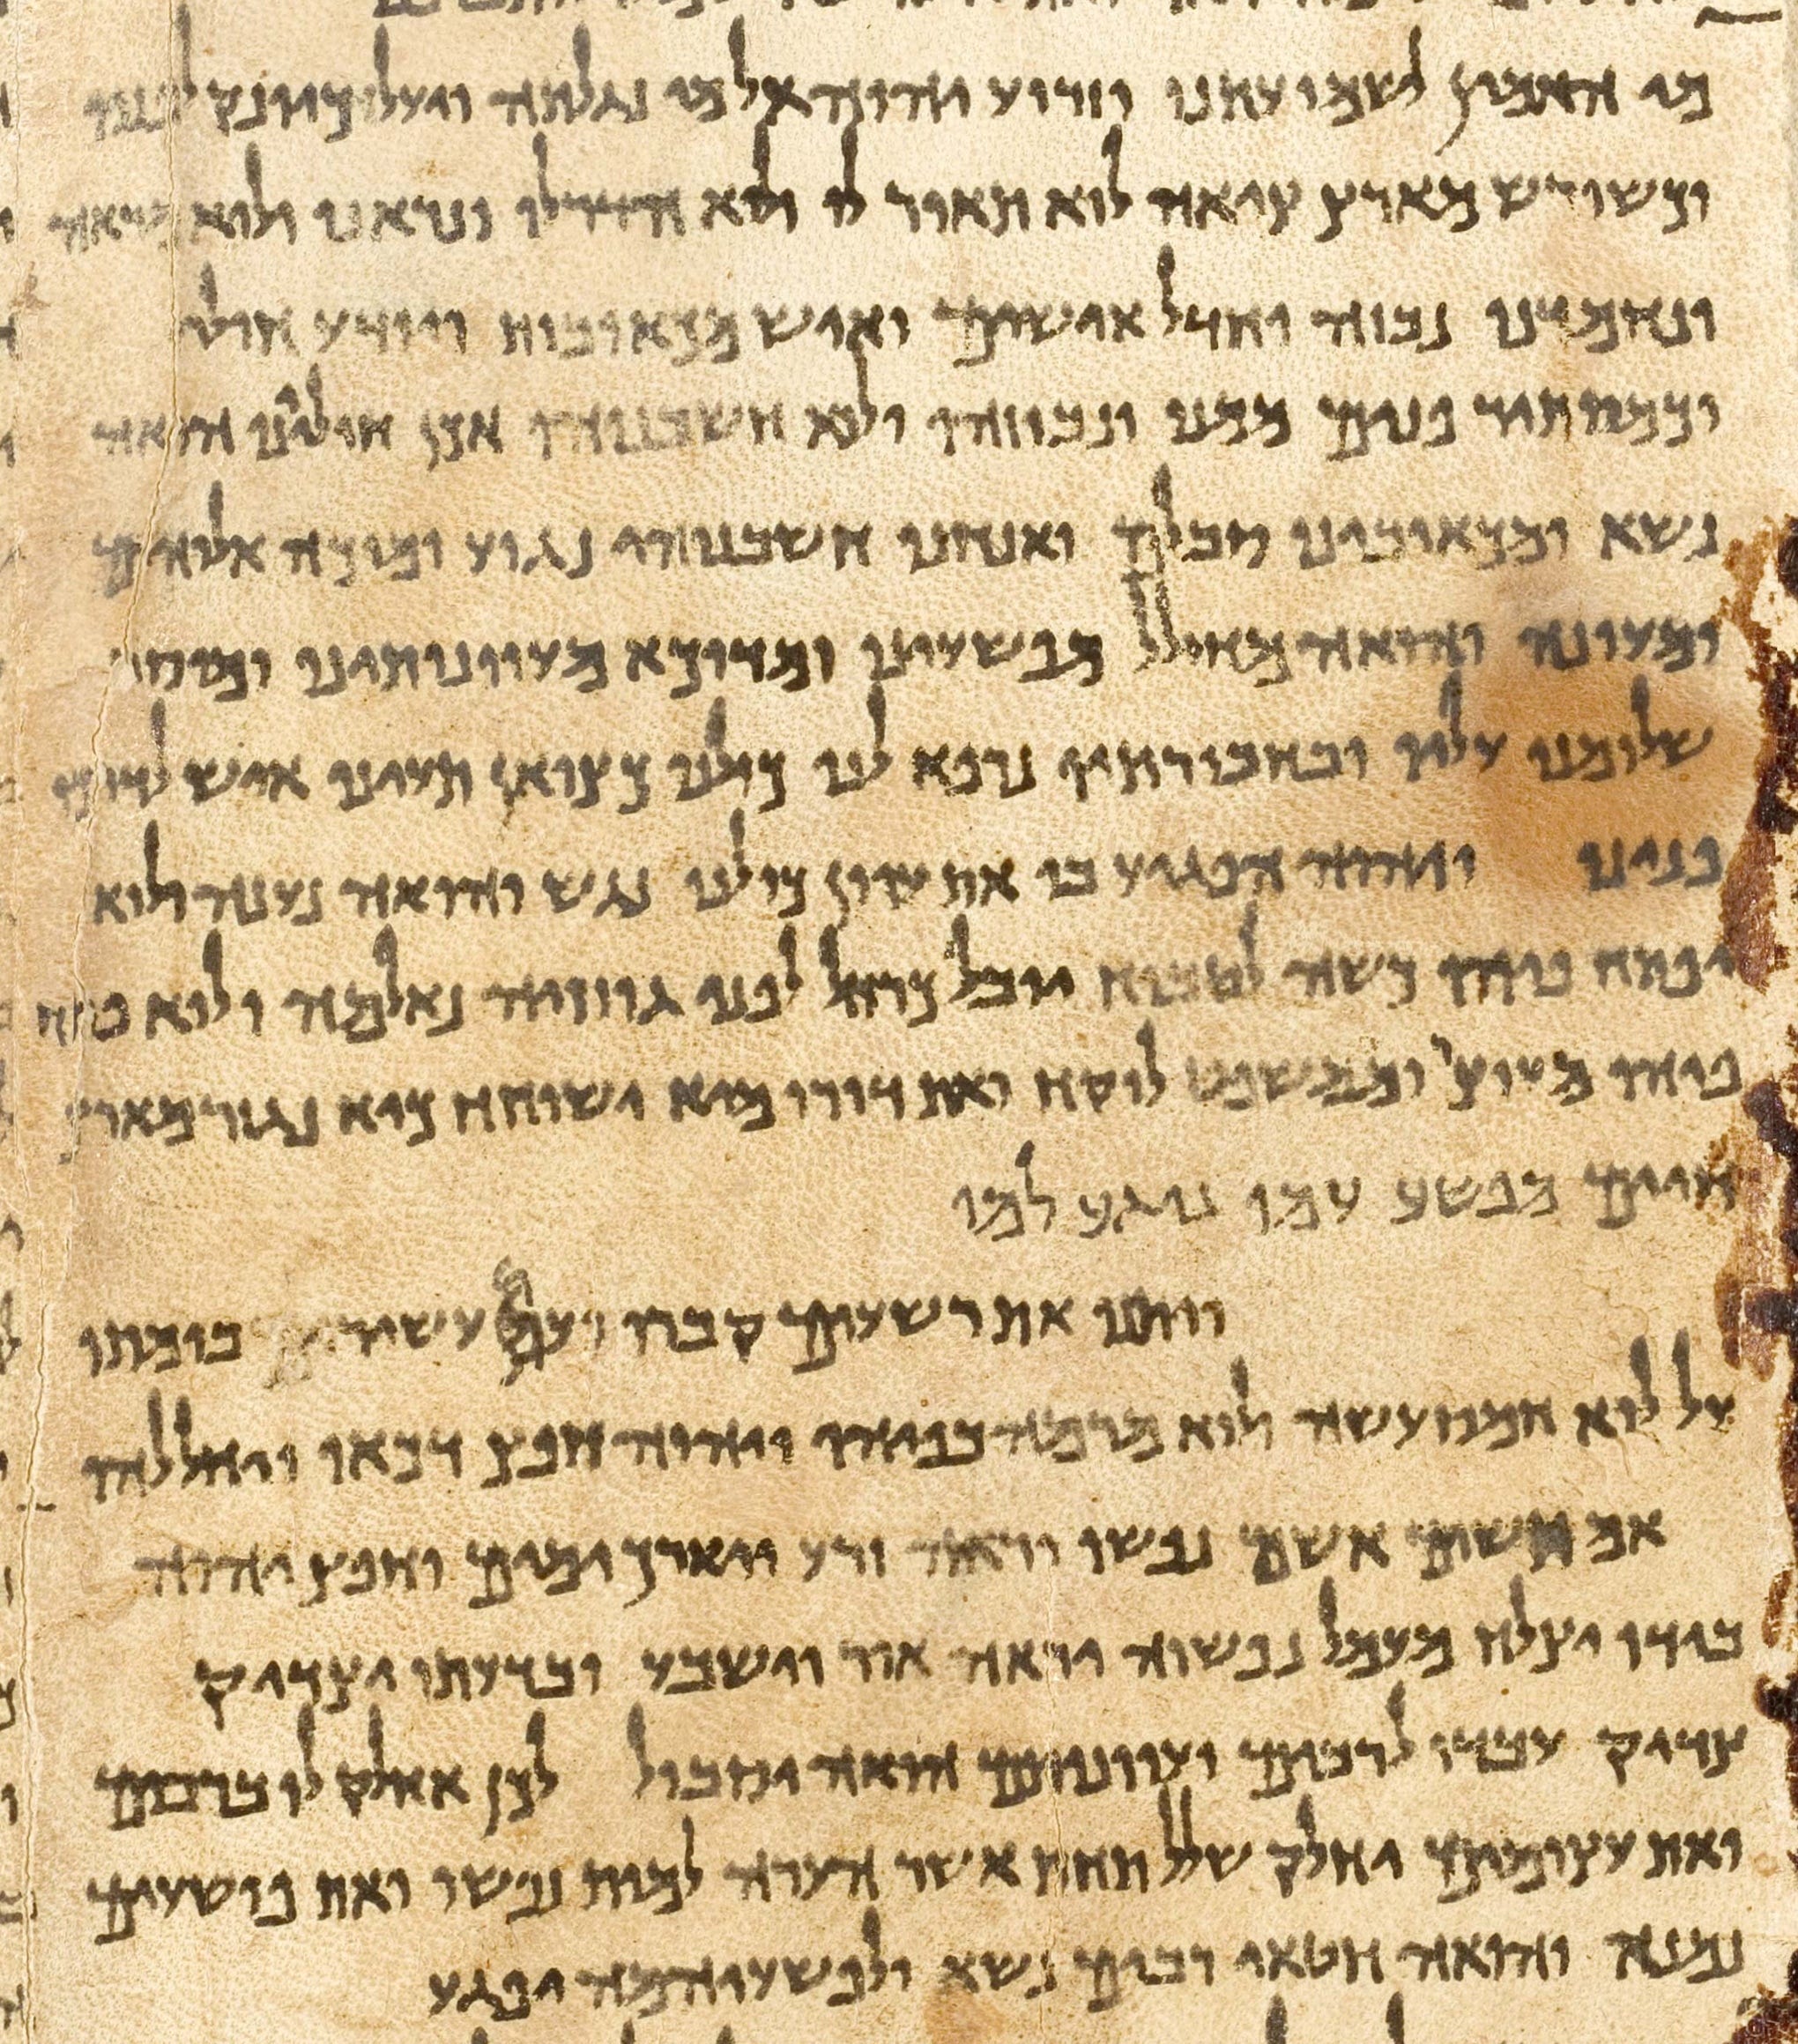 מי האמין לשמועתנו וזרוע יהוה אל מי נגלתה ויעל כיונק לפניו
וכשורש מארץ ציאה לוא תאור לו ולוא הדר לו ונראנו ולוא מראה
ונחמדנו נבוזה וחדל אישים ואיש מכאובות ויודע חולי
וכמסתיר פנים ממנו ונבוזהו ולוא חשבנוהו אכן חוליינו הואה
נשא ומכאובינו סבלם ואנחנו חשבנוהו נגוע ומוכה אלוהים
ומעונה והואה מחולל מפשעינו ומדוכא מעוונותינו ומוסר
שלומנו עליו ובחבורתיו נרפא לנו כולנו כצואן תעינו איש לדרכו
פנינו ויהוה הפגיע בו את עוון כולנו נגש והואה נענה ולוא
יפתח פיהו כשה לטבוח יובל כרחל לפני גוזזיה נאלמה ולוא פתח
פיהו מעוצר וממשפט לוקח ואת דורו מיא ישוחח כיא נגזר מארץ
חיים מפשע עמו נוגע למו
ויתנו את רשעים קברו ועם עשיר בומתו
על לוא חמס עשה ולוא מרמה בפיהו ויהוה חפץ דכאו ויחללהו
אם תשים אשם נפשו יראה זרע ויארך ימים וחפץ יהוה
בידו יצלח מעמל נפשוה יראה אור וישבע ובדעתו יצדיק
צדיק עבדו לרבים ועוונותם הואה יסבול לכן אחלק לו ברבים
ואת עצומים יחלק שלל תחת אשר הערה למות נפשו ואת פושעים
נמנה והואה חטאי רבים נשא ולפשעיהמה יפגע